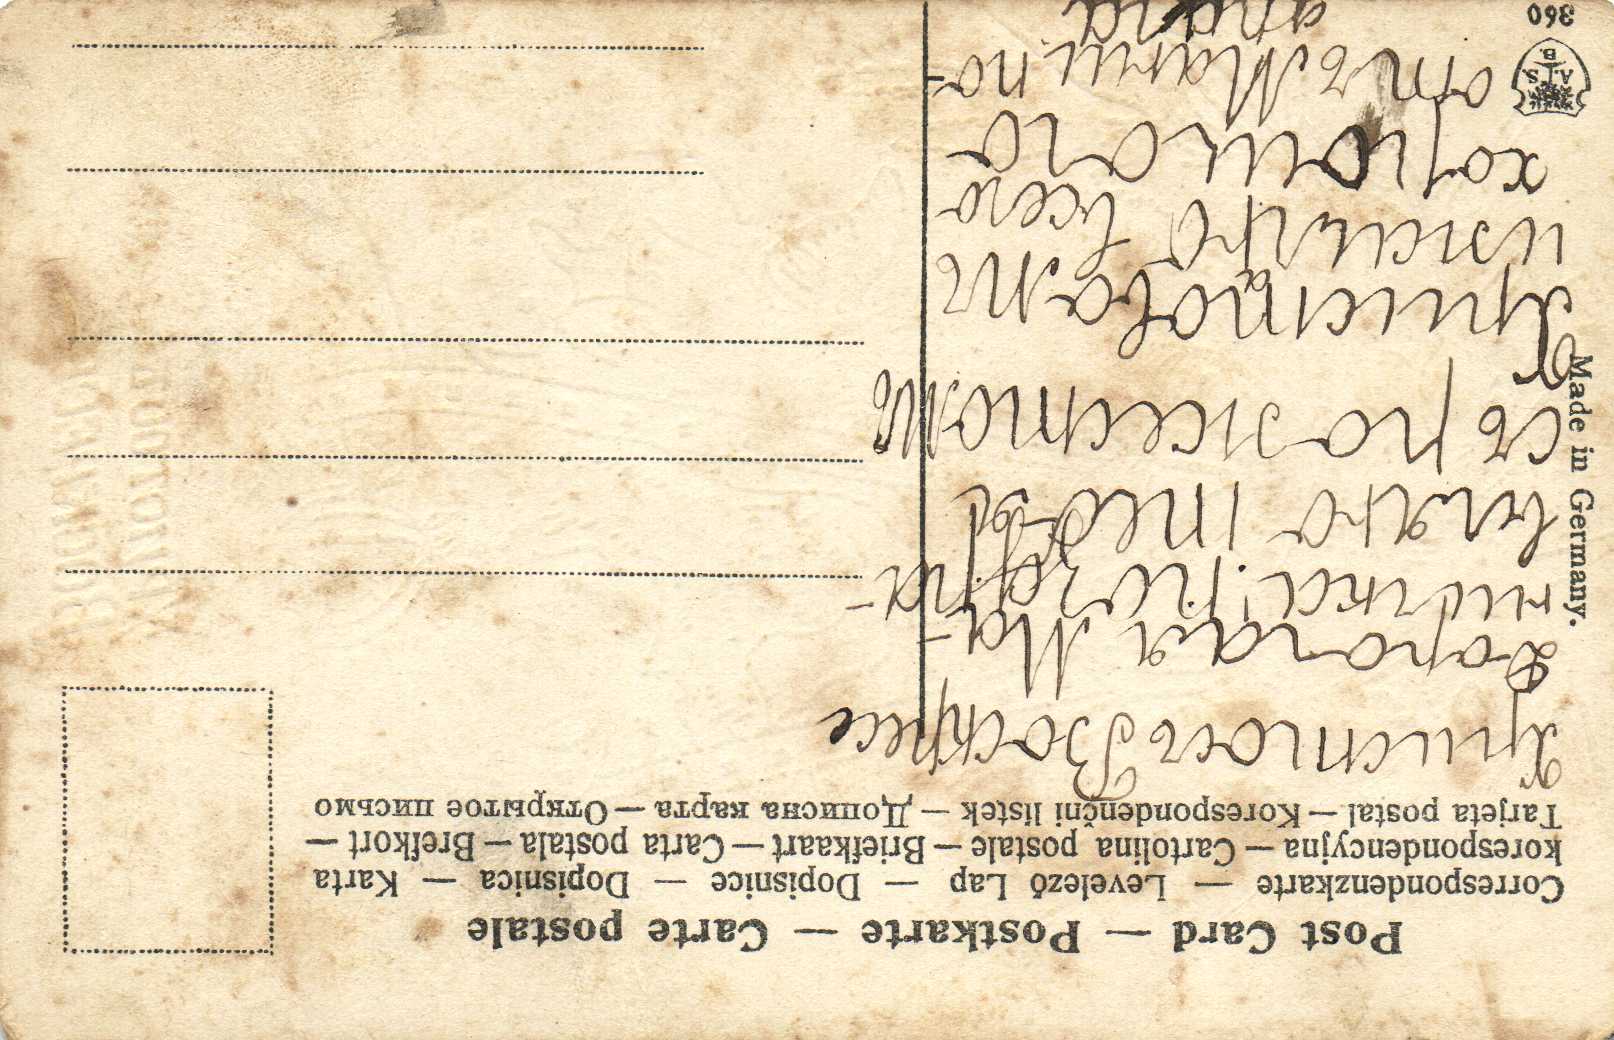 Post Card — Postkarte — Carte postale
Correspondenzkarte — Levelező Lap — Dopisnice — Dopisnica — Karta
korespondencyjna — Cartolina postale — Briefkaart — Carta postala — Brefkort —
Tarjeta postal — Korespondenční listek — Дописна карта — Открытое письмо
Христосъ Воскресе
Дорогая Ма-
ничка!
вляю тебя
съ рожествомъ
Христовамъ
изнаиlю всего
хорошого
отъ Маши по-
Made in Germany.
A.J.S
B.
360